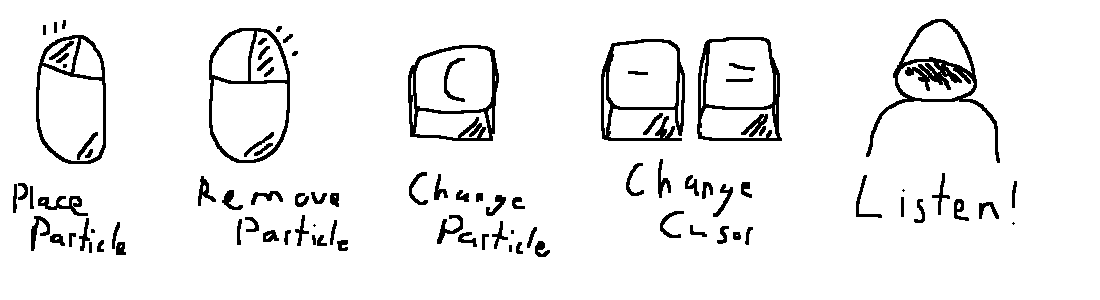 C
-
=
Place
Particle
Remove
Particle
Change
Particle
Change
Cursor
Listen!